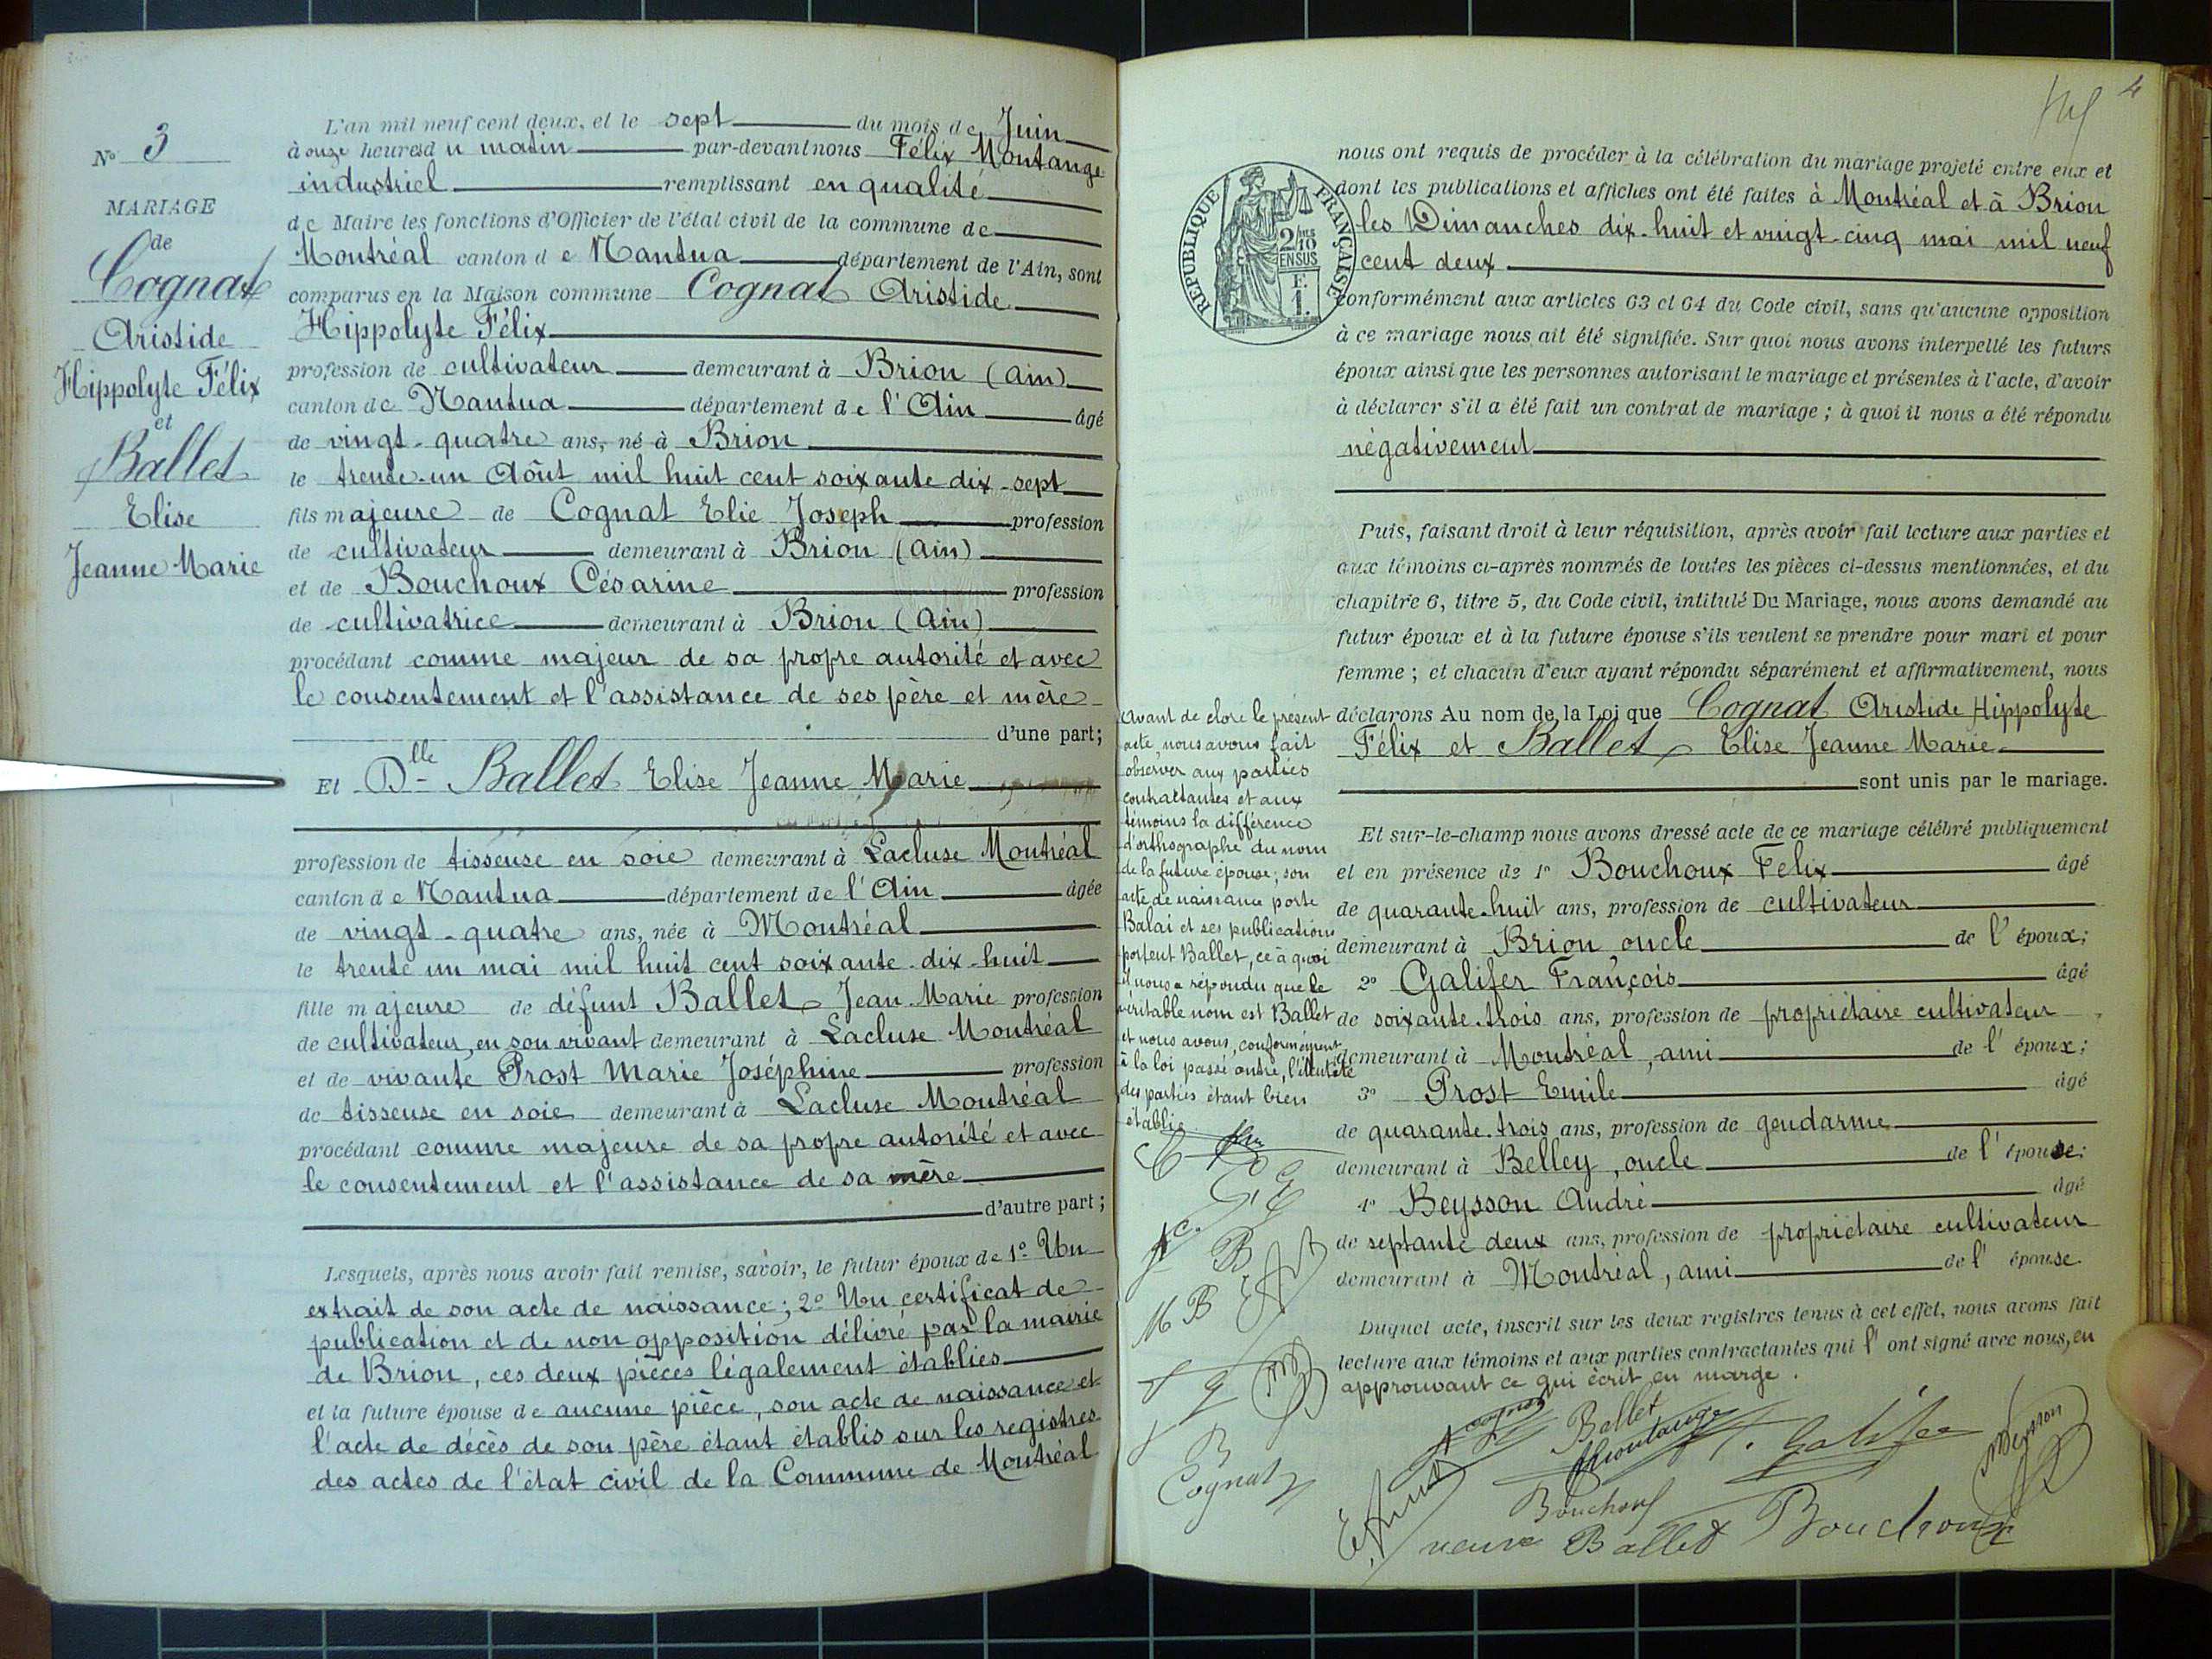 N° 3
MARIAGE
de
Cognat
Aristide
Hippolyte Félix
et
Ballet
Elise
Jeanne Marie
L'an mil neuf cent deux, et le sept du mois de Juin
à onze heures du matin par-devant nous Félix Montange
industriel remplissant en qualité
de Maire les fonctions d'Officier de l'état civil de la commune de
Montréal canton de Nantua département de l'Ain, sont
comparus en la Maison commune Cognat Aristide
Hippolyte Félix
profession de cultivateur demeurant à Brion (Ain)
canton de Nantua département de l'Ain âgé
de vingt-quatre ans, né à Brion
le trente-un Aôut mil huit cent soixante dix-sept
fils majeure de Cognat Elie Joseph profession
de cultivateur demeurant à Brion (Ain)
et de Bouchoux Césarine profession
de cultivatrice demeurant à Brion (Ain)
procédant comme majeur de sa propre autorité et avec
le consentement et l'assistance de ses père et mère
d'une part;
Et Dlle Ballet Elise Jeanne Marie
profession de tisseuse en soie demeurant à Lacluse Montréal
canton de Nantua département de l'Ain âgée
de vingt-quatre ans, née à Montréal
le trente un mai mil huit cent soixante-dix-huit
fille majeure de défunt Ballet Jean-Marie profession
de cultivateur, en son vivant demeurant à Lacluse Montréal
et de vivante Prost Marie Joséphine profession
de tisseuse en soie demeurant à Lacluse Montréal
procédant comme majeure de sa propre autorité et avec
le consentement et l'assistance de sa mère
d'autre part;
Lesquels, après nous avoir fait remise, savoir, le futur époux de 1° Un
extrait de son acte de naissance; 2° Un certificat de
publication et de non opposition délivré par la mairie
de Brion, ces deux pièces légalement établies
et la future épouse de aucune pièce, son acte de naissance et
l'acte de décès de son père étant établis sur les registres
des actes de l'état civil de la Commune de Montréal
4
RÉPUBLIQUE FRANÇAISE
2/10
EN SUS
F.
1.
nous ont requis de procéder à la célébration du mariage projeté entre eux et
dont les publications et affiches ont été faites à Montréal et à Brion
les Dimanches dix-huit et vingt-cinq mai mil neuf
cent deux
conformément aux articles 63 et 64 du Code civil, sans qu'aucune opposition
à ce mariage nous ait été signifiée. Sur quoi nous avons interpellé les futurs
époux ainsi que les personnes autorisant le mariage et présentes à l'acte, d'avoir
à déclarer s'il a été fait un contrat de mariage; à quoi il nous a été répondu
négativement
Puis, faisant droit à leur réquisition, après avoir fait lecture aux parties et
aux témoins ci-après nommés de toutes les pièces ci-dessus mentionnées, et du
chapitre 6, titre 5, du Code civil, intitulé Du Mariage, nous avons demandé au
futur époux et à la future épouse s'ils veulent se prendre pour mari et pour
femme; et chacun d'eux ayant répondu séparément et affirmativement, nous
déclarons Au nom de la Loi que Cognat Aristide Hippolyte
Félix et Ballet Elise Jeanne Marie
sont unis par le mariage.
Et sur-le-champ nous avons dressé acte de ce mariage célébré publiquement
et en présence de 1° Bouchoux Felix âgé
de quarante-huit ans, profession de cultivateur
demeurant à Brion, oncle de l'époux;
2° Galifer François âgé
de soixante-trois ans, profession de propriétaire cultivateur
demeurant à Montréal, ami de l'époux;
3° Prost Emile âgé
de quarante-trois ans, profession de gendarme
demeurant à Belley, oncle de l'épouse;
4° Beysson André âgé
de septante deux ans, profession de propriétaire cultivateur
demeurant à Montréal, ami de l'épouse.
Duquel acte, inscrit sur les deux registres tenus à cet effet, nous avons fait
lecture aux témoins et aux parties contractantes qui l'ont signé avec nous, en
approuvant ce qui écrit en marge.
Avant de clore le présent
acte, nous avons fait
observer aux parties
contractantes et aux
témoins la différence
d'orthographe du nom
de la future épouse; son
acte de naissance porte
Balai et ses publications
portent Ballet, ce à quoi
il nous a répondu que le
véritable nom est Ballet
et nous avons, conformément
à la loi passé outre, l'identité
des parties étant bien
établie.
B
M B
Cognat
Cognat
Ballet
Montange
Galifer
Beysson
Bouchoux
veuve Ballet
Bouchoux